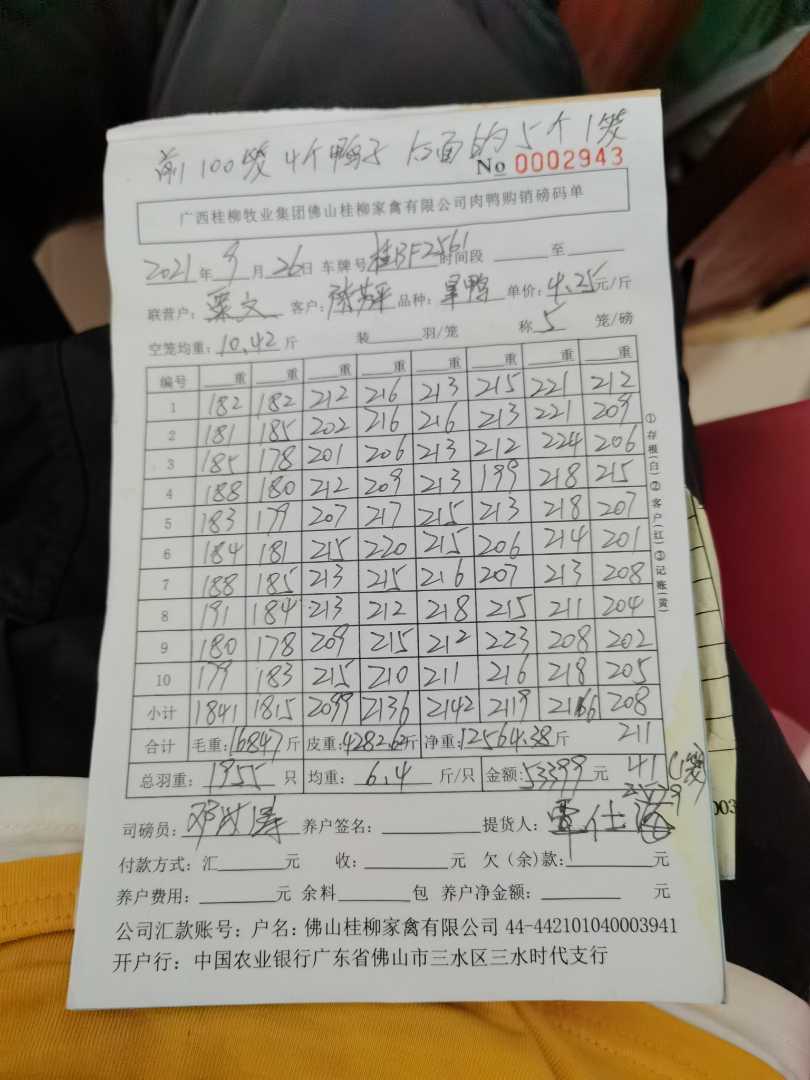 前100笼4个鸭子 后面的5个1笼
No 0002943
广西桂柳牧业集团佛山桂柳家禽有限公司肉鸭购销磅码单
2021年9月26日 车牌号桂BF2561时间段______至______
联营户:栗文 客户: 品种: 鸭 单价:4.25元/斤
空笼均重:10.42斤 装______羽/笼 称5笼/磅
编号 ___重 ___重 ___重 ___重 ___重 ___重 ___重 ___重
1 182 182 212 216 213 215 221 212
2 181 185 202 216 216 213 221 209
3 185 178 201 206 213 212 224 206
4 188 180 212 209 213 199 218 215
5 183 179 207 217 215 213 218 207
6 184 181 215 220 215 206 214 201
7 188 185 213 215 216 207 213 208
8 191 184 213 212 218 215 211 204
9 180 178 209 215 212 223 208 202
10 179 183 215 210 211 216 218 205
小计 1841 1815 2099 2136 2142 2119 2166 208
211
合计 毛重:16847斤 皮重:4282.62斤 净重:12564.38斤
41 (1笼)
总羽重:1955只 均重:6.4斤/只 金额:53399元
2579
司磅员: 养户签名:______ 提货人:
付款方式:汇______元 收:______元 欠(余)款:______元
养户费用:______元 余料______包 养户净金额:______元
公司汇款账号:户名:佛山桂柳家禽有限公司 44-442101040003941
开户行:中国农业银行广东省佛山市三水区三水时代支行
①存根(白)②客户(红)③记账(黄)
003